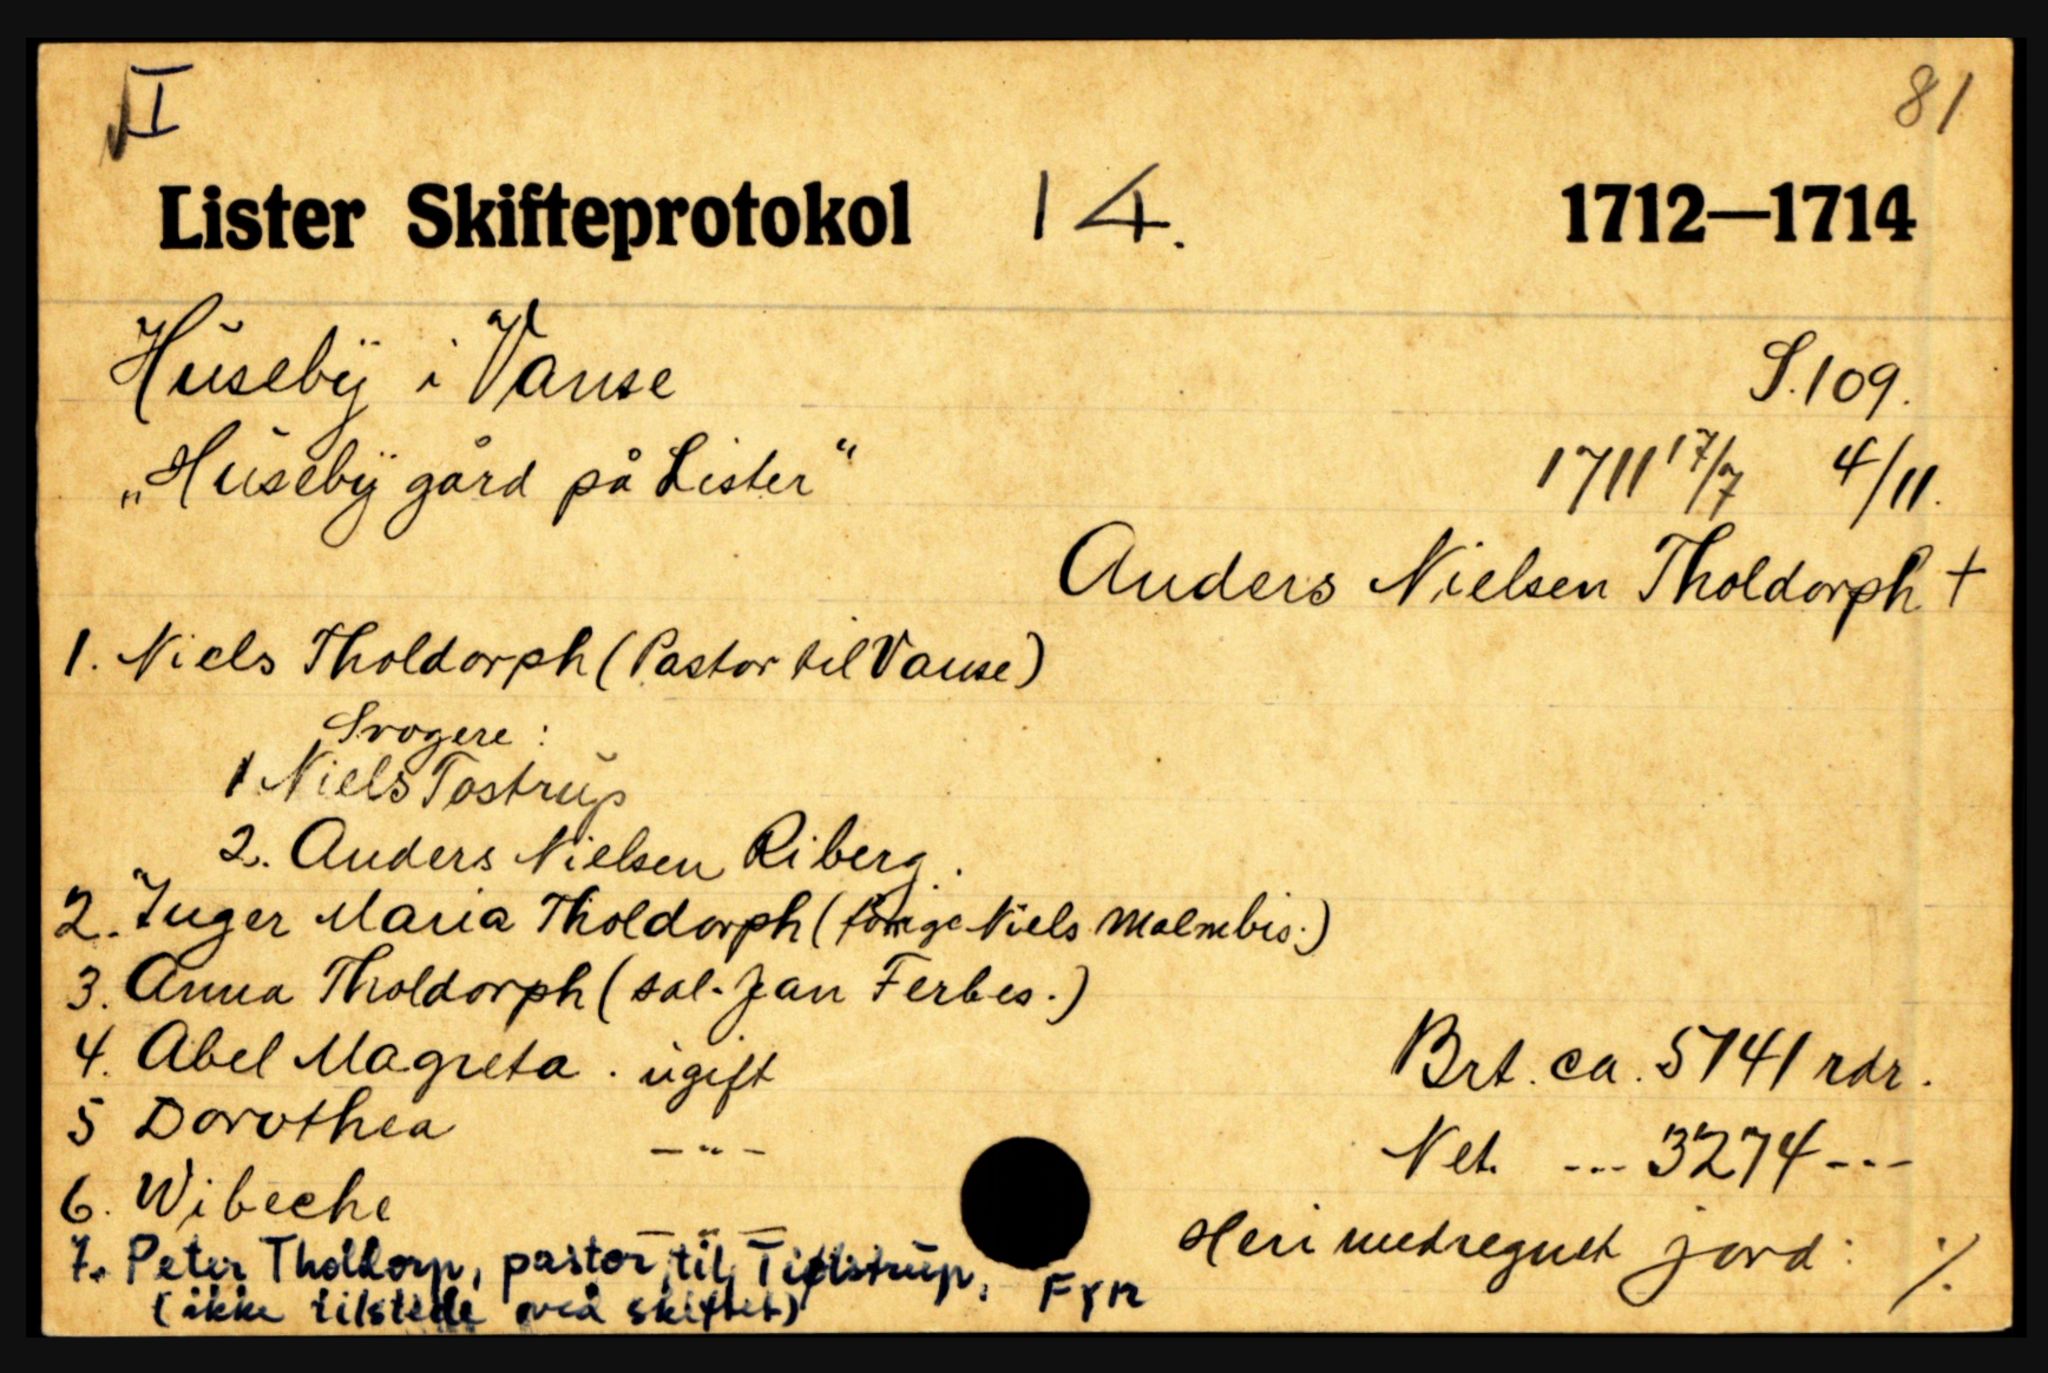 I 81
Lister Skifteprotokol 14. 1712—1714
Husebÿ i Vanse S.109.
„Husebÿ gård på Lister“ 1711 17/7 4/11.
Anders Nielsen Tholdorph +
1. Niels Tholdorph (Pastor til Vanse)
Svogere:
1 Niels Tostrup
2. Anders Nielsen Riberg.
2. Inger Maria Tholdorph ( Niels Malmbis.)
3. Anna Tholdorph (sal. Jan Ferbes.)
4. Abel Magreta. ugift Brt. ca. 5741 rdr.
5 Dorothea —"— Net. --- 3274 ---
6. Wibeche —"—
Heri medregnet jord: ./.
7. Peter Tholdorp, pastor til Tidlstrup, Fyn
(ikke tilstede ved skiftet)